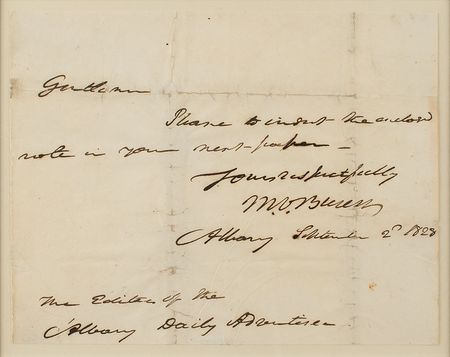 Gentlemen
Please to insert the enclosed
note in your next paper –
Yours respectfully
M. V. Buren
Albany September 2d 1828
The Editor of the
Albany Daily Advertiser